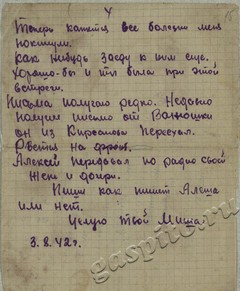 4
Теперь кажется все болезни меня
покинули.
Как нибудь заеду к ним еще.
Хорошо-бы и ты была при этой
встрече.
Письма получаю редко. Недавно
получил письмо от Ванюшки
он из Кирсанова переехал.
Рвется на фронт.
Алексей передавал по радио своей
жене и дочери.
Пиши как пишет Алеша
или нет.
Целую твой Миша
3.8.42г.
gaspito.ru